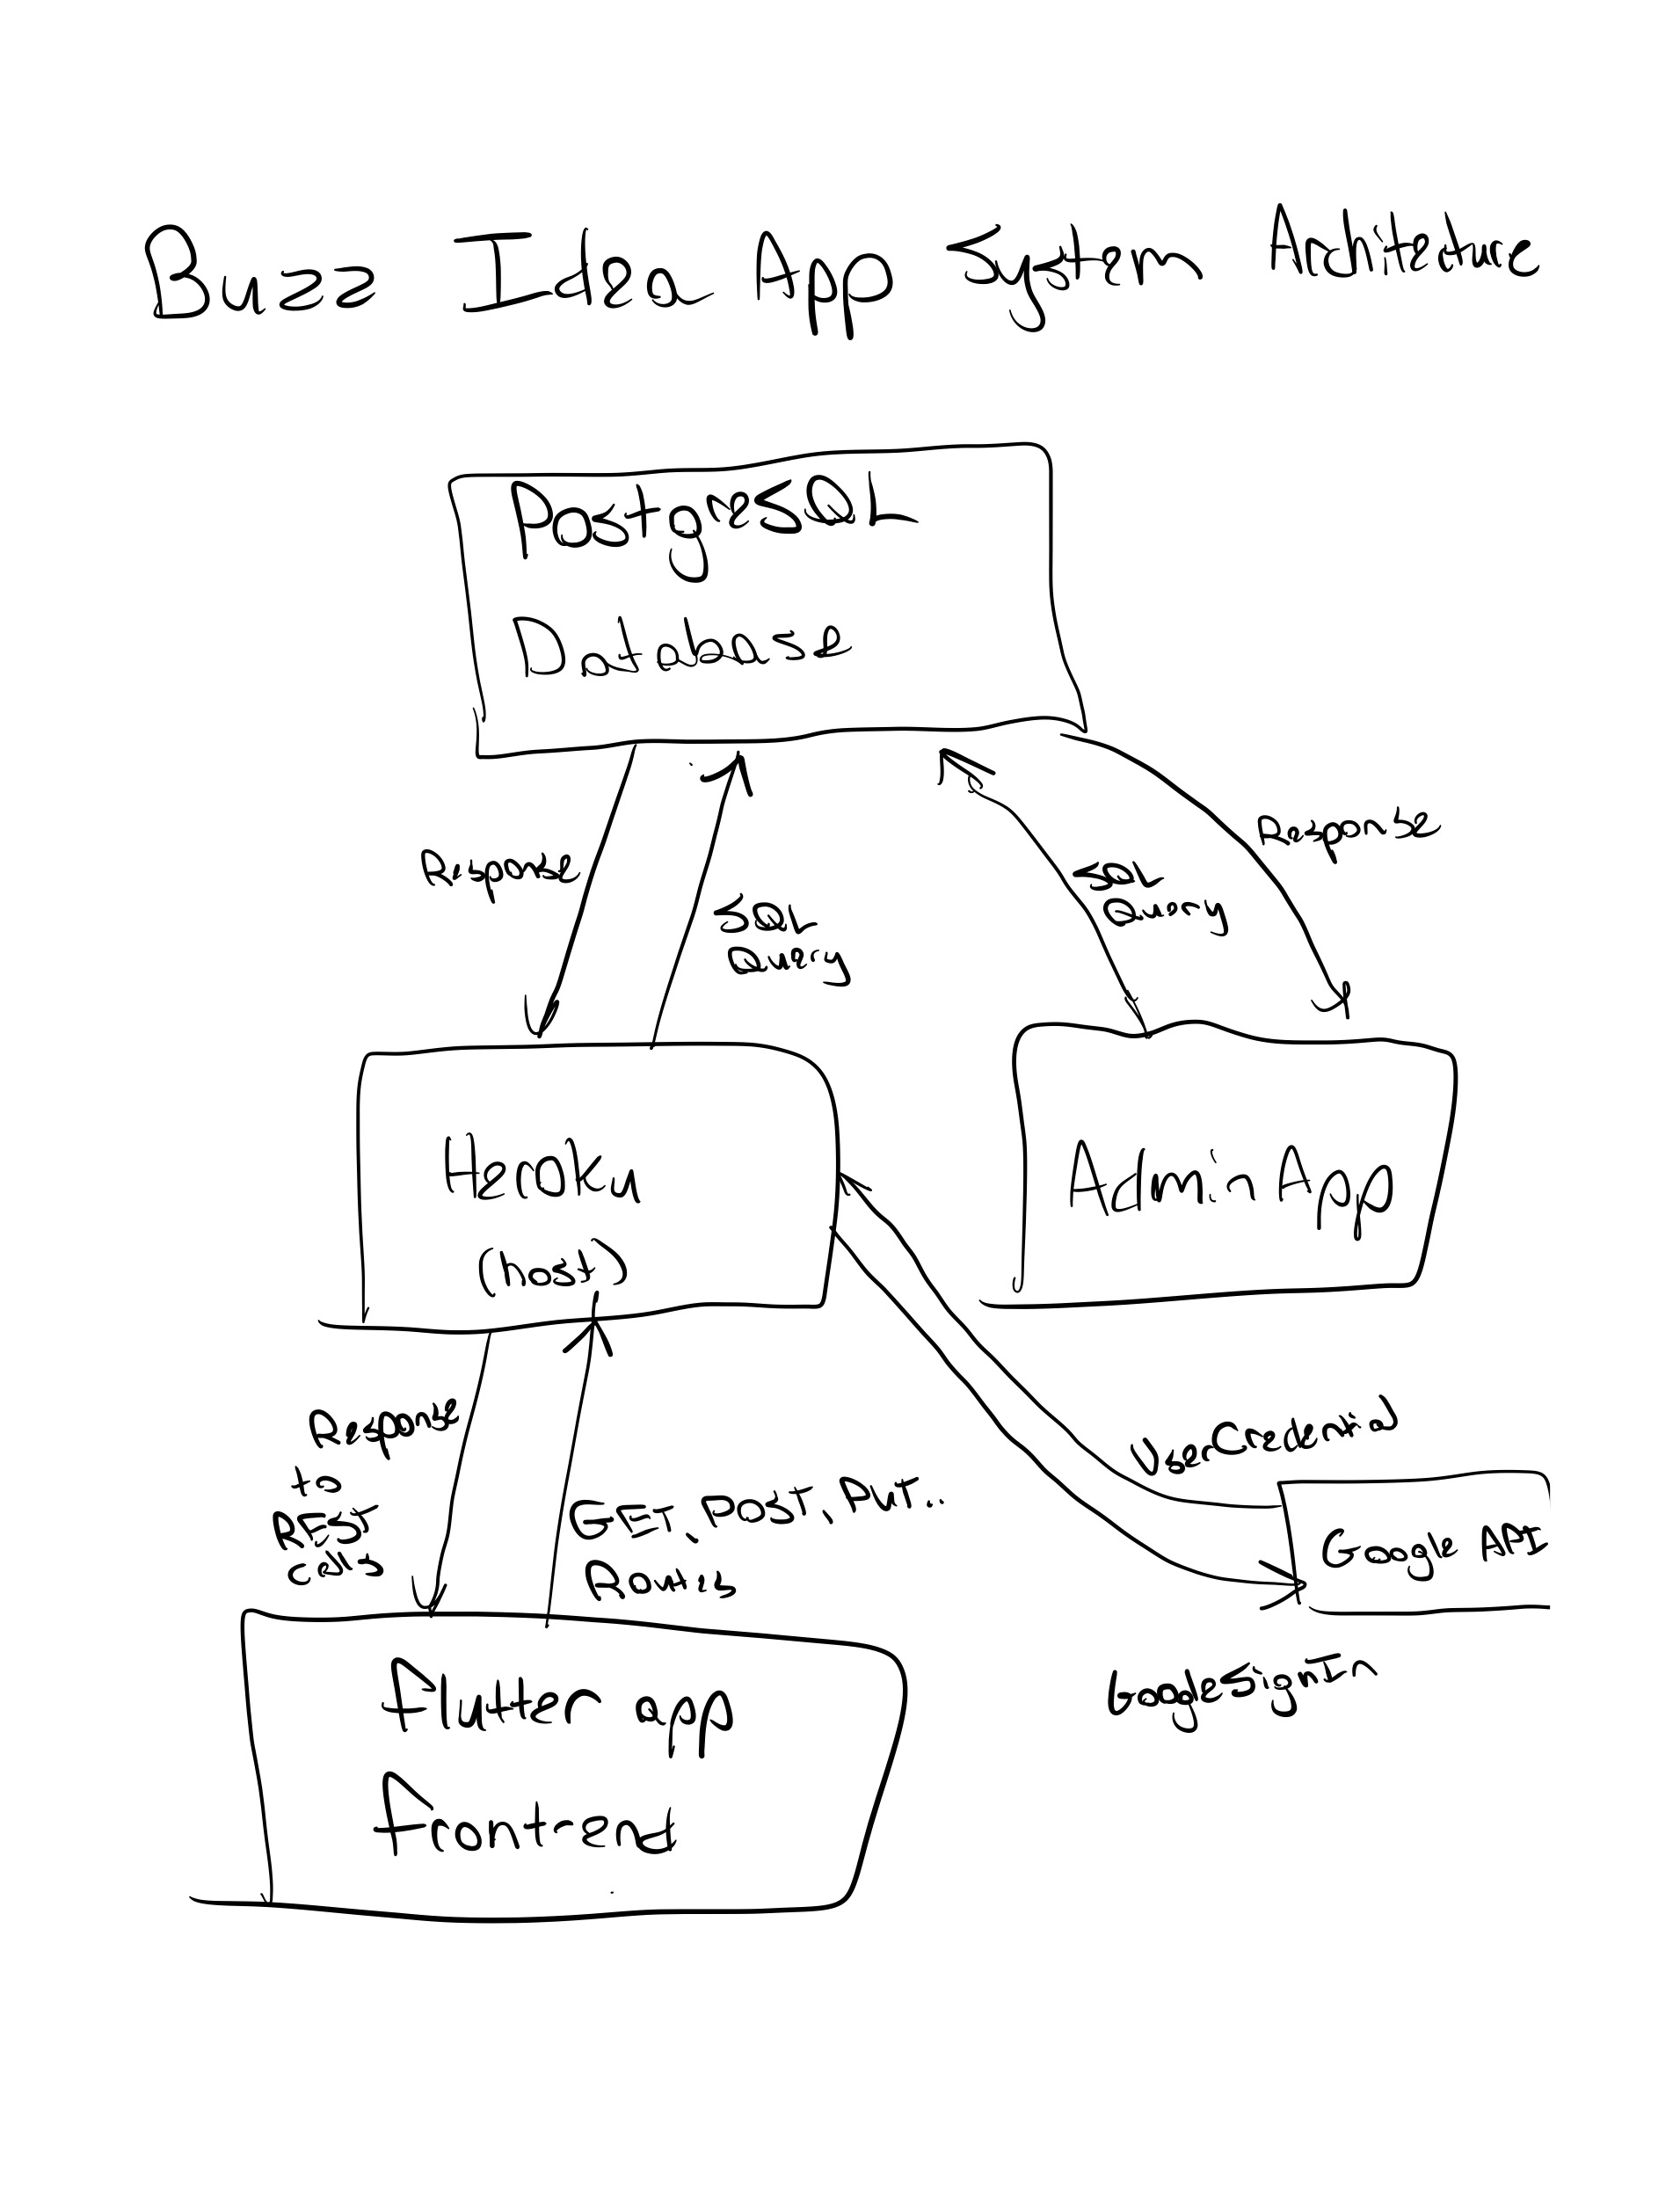 Buzz Idea App System Architeture
PostgreSQL
Database
Response
SQL
Query
SQL
Query
Response
Heroku
(host)
Admin App
Response
to
REST
call
GET, POST, PUT..
Routes
UserCredential
Google API
GoogleSignIn
Flutter app
Frontend